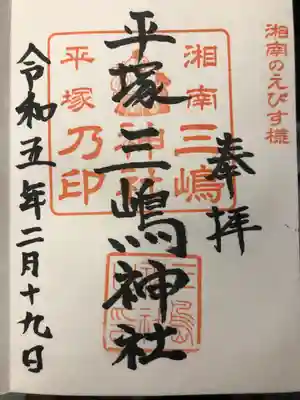 湘南のえびす様
奉拝
湘南三嶋
神社
平塚乃印
平塚三嶋神社
令和五年二月十九日